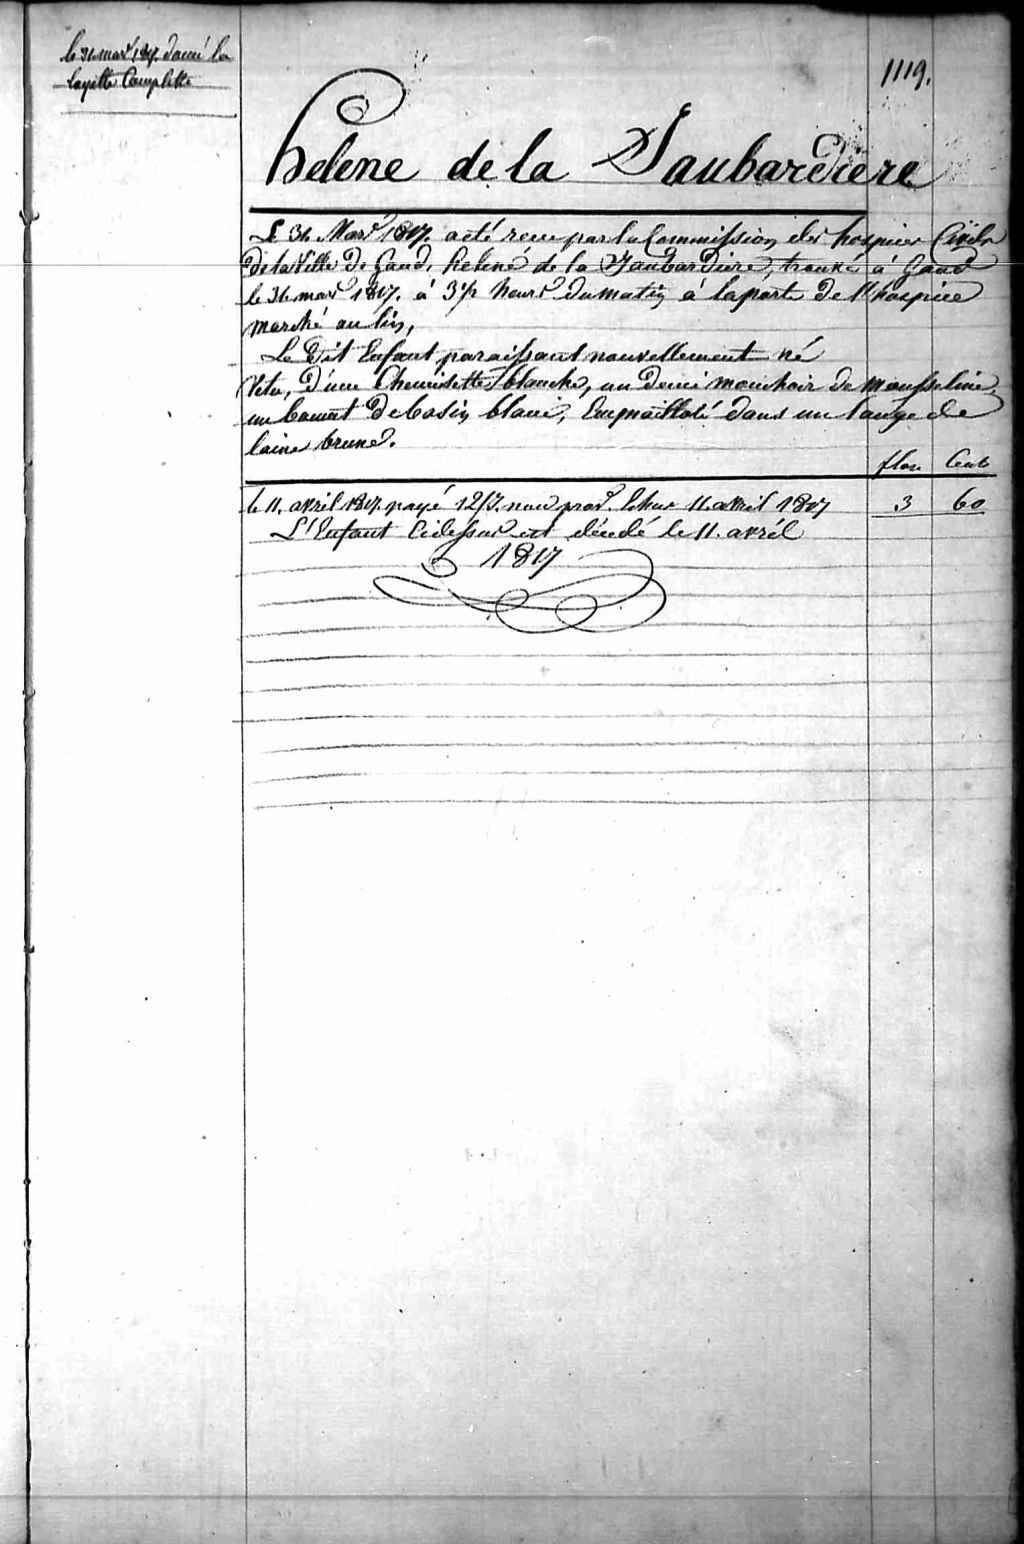 le 31 mars 1817. donné la
layette Complette
1119.
helene de la Jaubardiere
Le 31 Mars 1817. a été recu par la Commission des hospices Civils
De la Ville De Gand, helene de la Jaubardiere, trouvé à Gand
le 31 mars 1817. à 3 1/2 heurs du matin à la porte De l'hospice
marché au lin,
Le Dit Enfant paraissant nouvellement né
Vetu, D'une Chemisette blanche, un demi mouchoir de mousseline,
un bonnet De basin blanc, Emmailloté dans un lange de
laine brune.
flor Cent
le 11. avril 1817. payé nour 11. avril 1817 3 60
L'Enfant Cidessus est décédé le 11. avril
1817